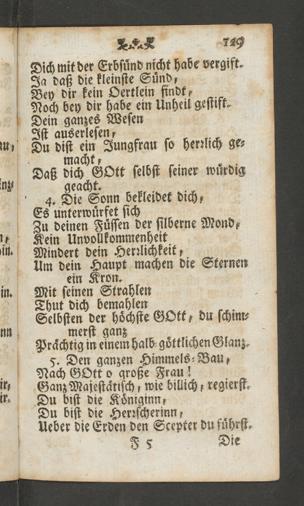 129
Dich mit der Erbsünd nicht habe vergift.
Ja daß die kleinste Sünd,
Bey dir kein Oertlein findt,
Noch bey dir habe ein Unheil gestift.
Dein ganzes Wesen
Ist auserlesen,
Du bist ein Jungfrau so herrlich ge-
macht,
Daß dich GOtt selbst seiner würdig
geacht.
4. Die Sonn bekleidet dich,
Es unterwürfet sich
Zu deinen Füssen der silberne Mond,
Kein Unvollkommenheit
Mindert dein Herrlichkeit,
Um dein Haupt machen die Sternen
ein Kron.
Mit seinen Strahlen
Thut dich bemahlen
Selbsten der höchste GOtt, du schim-
merst ganz
Prächtig in einem halb-göttlichen Glanz.
5. Den ganzen Himmels-Bau,
Nach GOtt o große Frau!
Ganz Majestätisch, wie bilich, regierst.
Du bist die Königinn,
Du bist die Herrscherinn,
Ueber die Erden den Scepter du führst.
F 5 Die